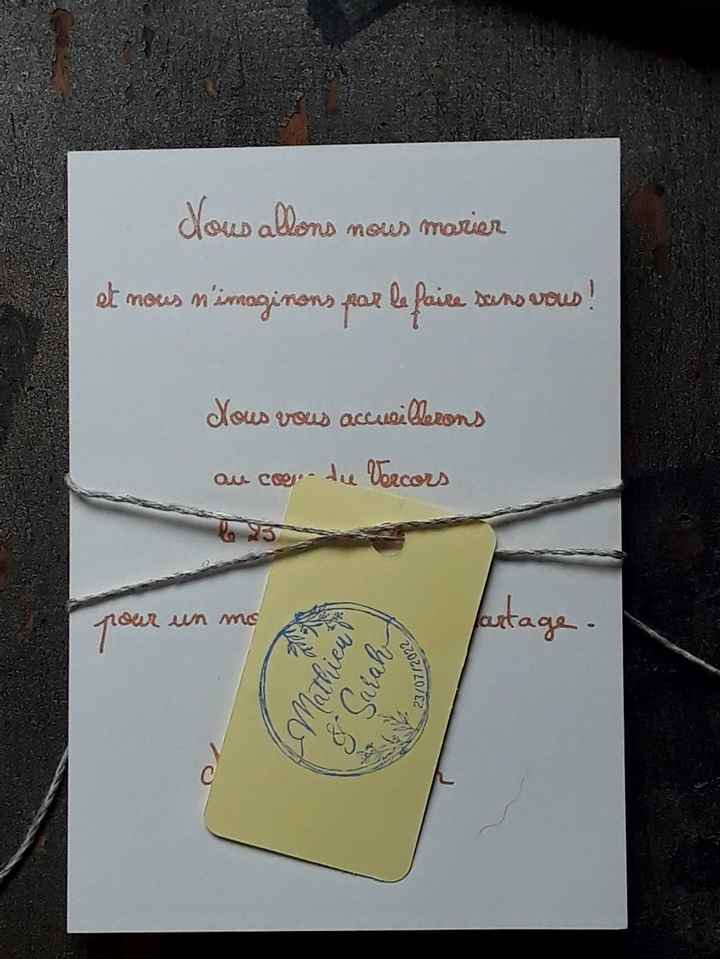 Nous allons nous marier
et nous n'imaginons pas le faire sans vous !
Nous vous accueillerons
au coeur du Vercors
le 23
pour un
artage .
Mathieu
& Sarah
23/07/2022